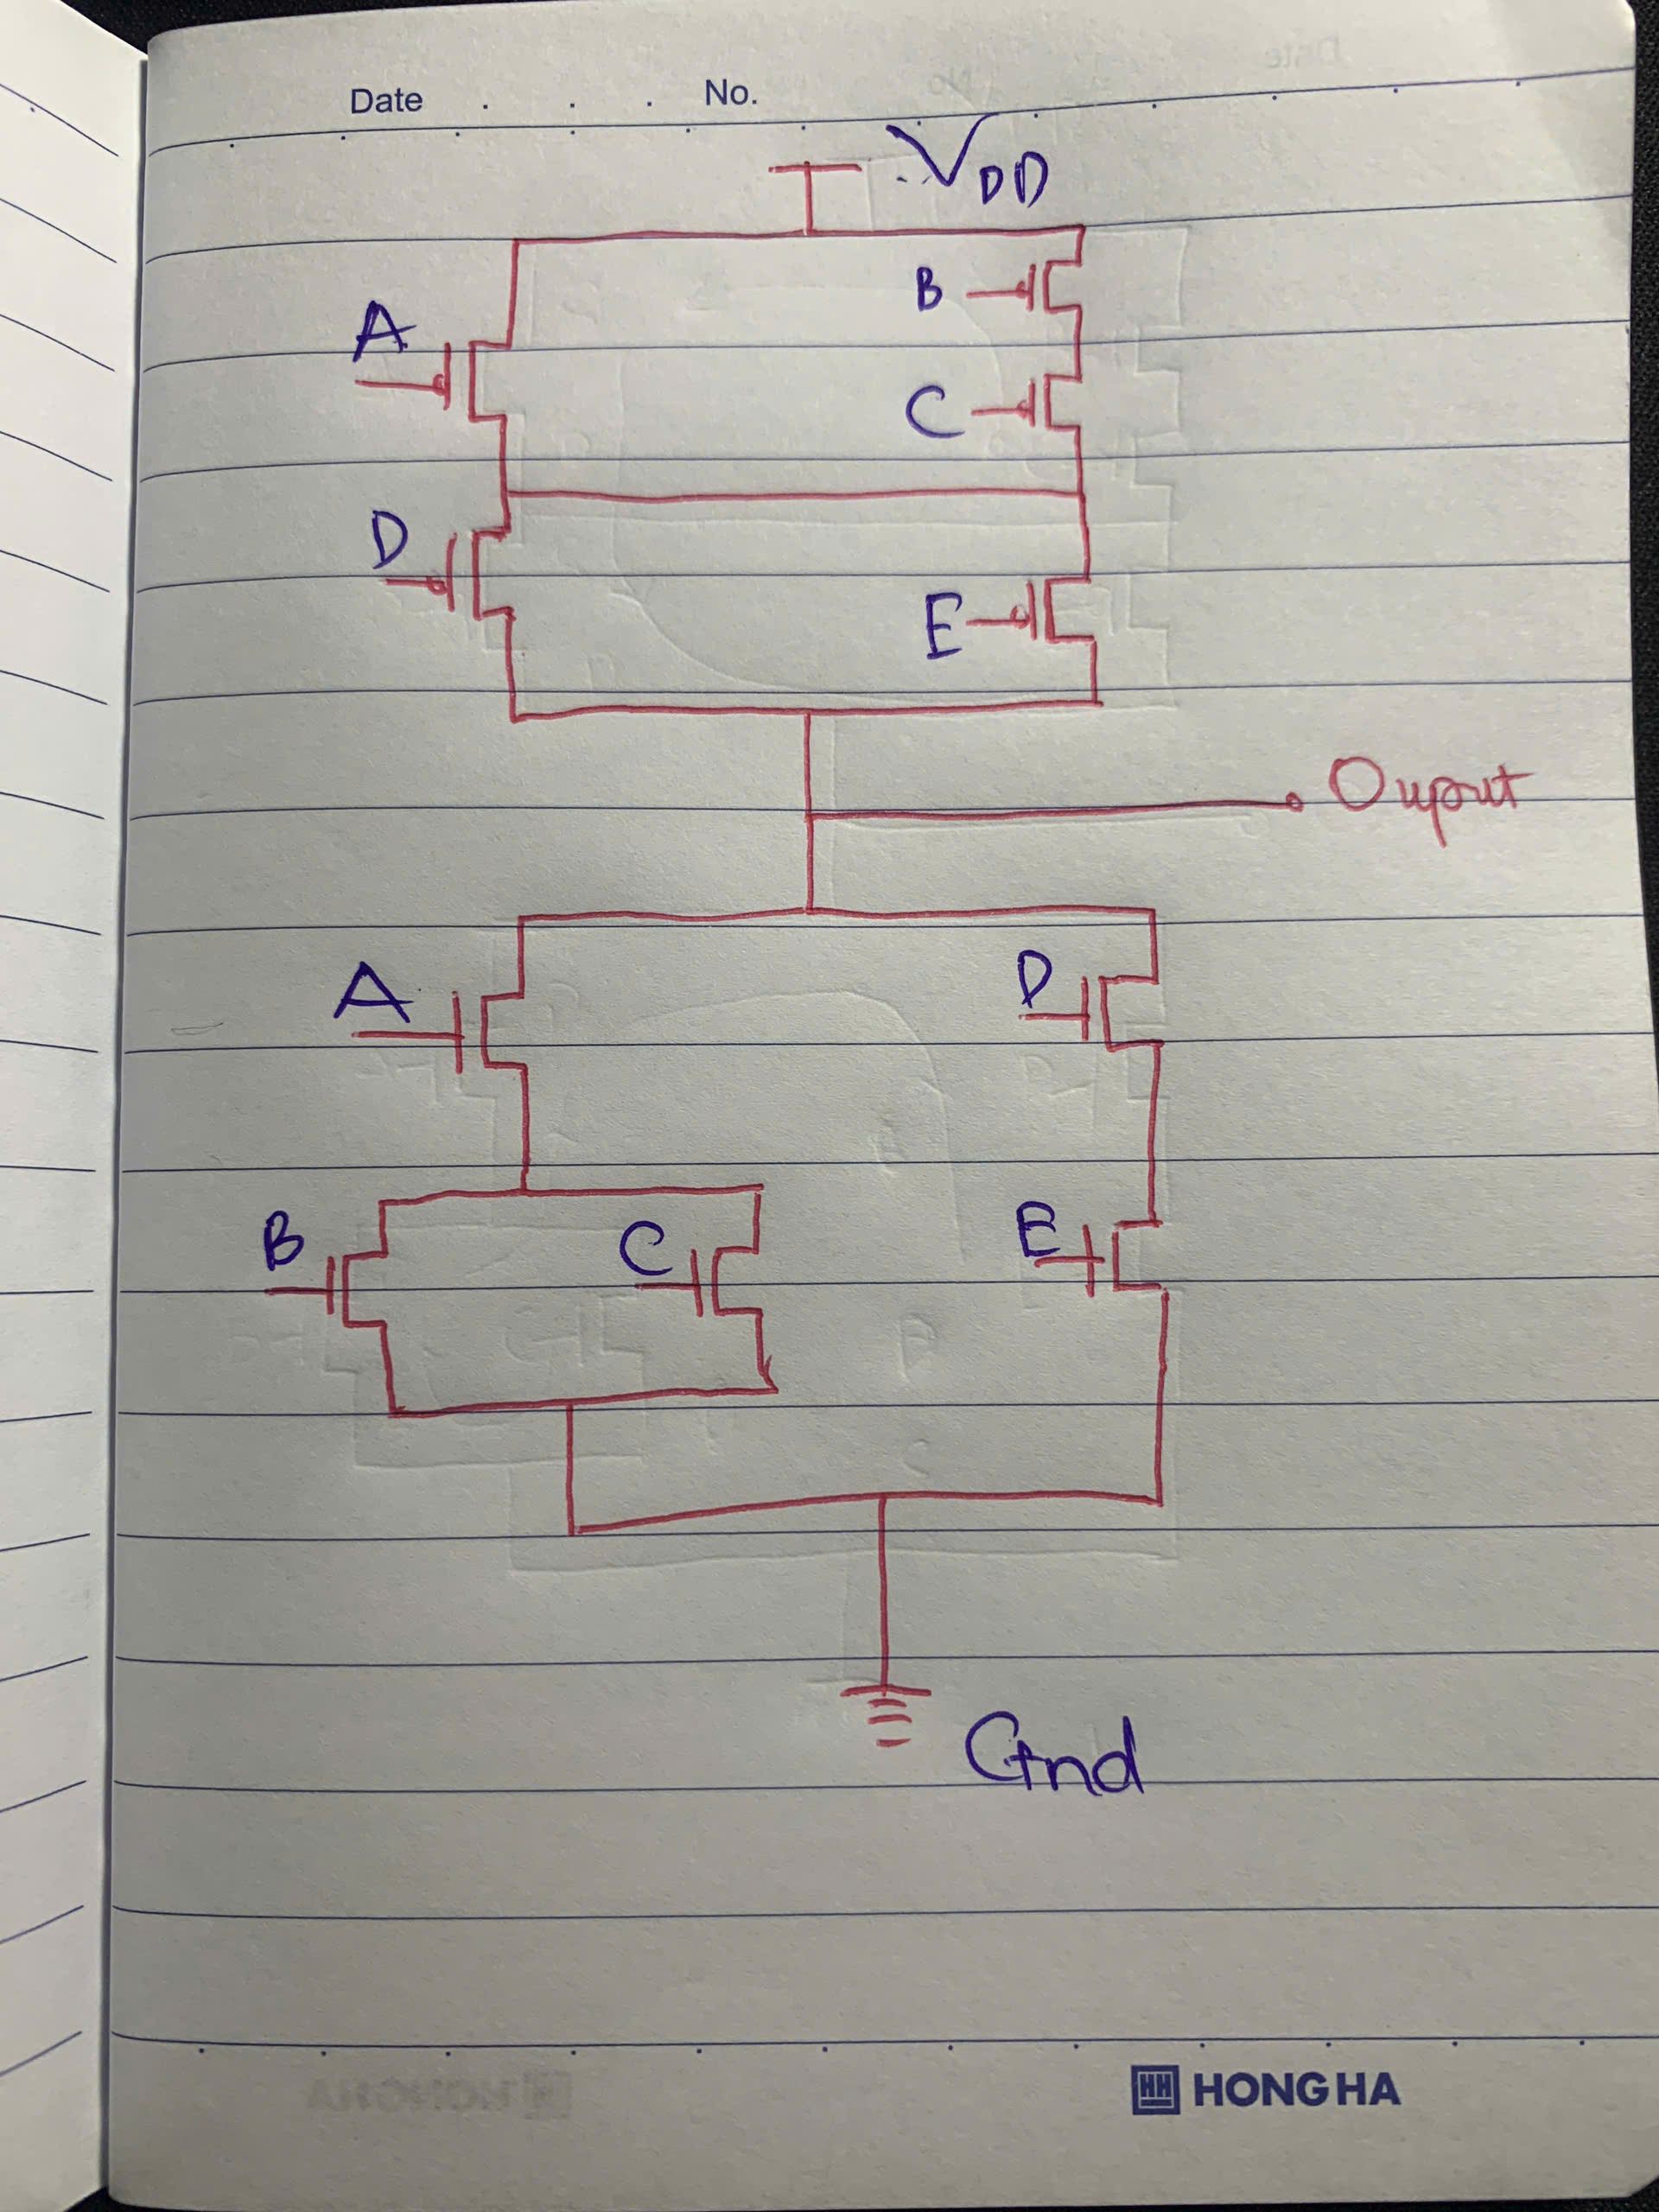 Date . . . No.
VDD
B
A
C
D
E
Ouput
A
D
B
C
E
Gnd
HH HONG HA